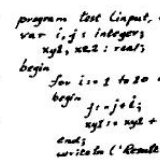 program test (input,
var i, j : integer;
xy1, xz2 : real;
begin
for i := 1 to 10
begin
j := j+i;
xy1 := xy1 +
end;
writeln ('Result